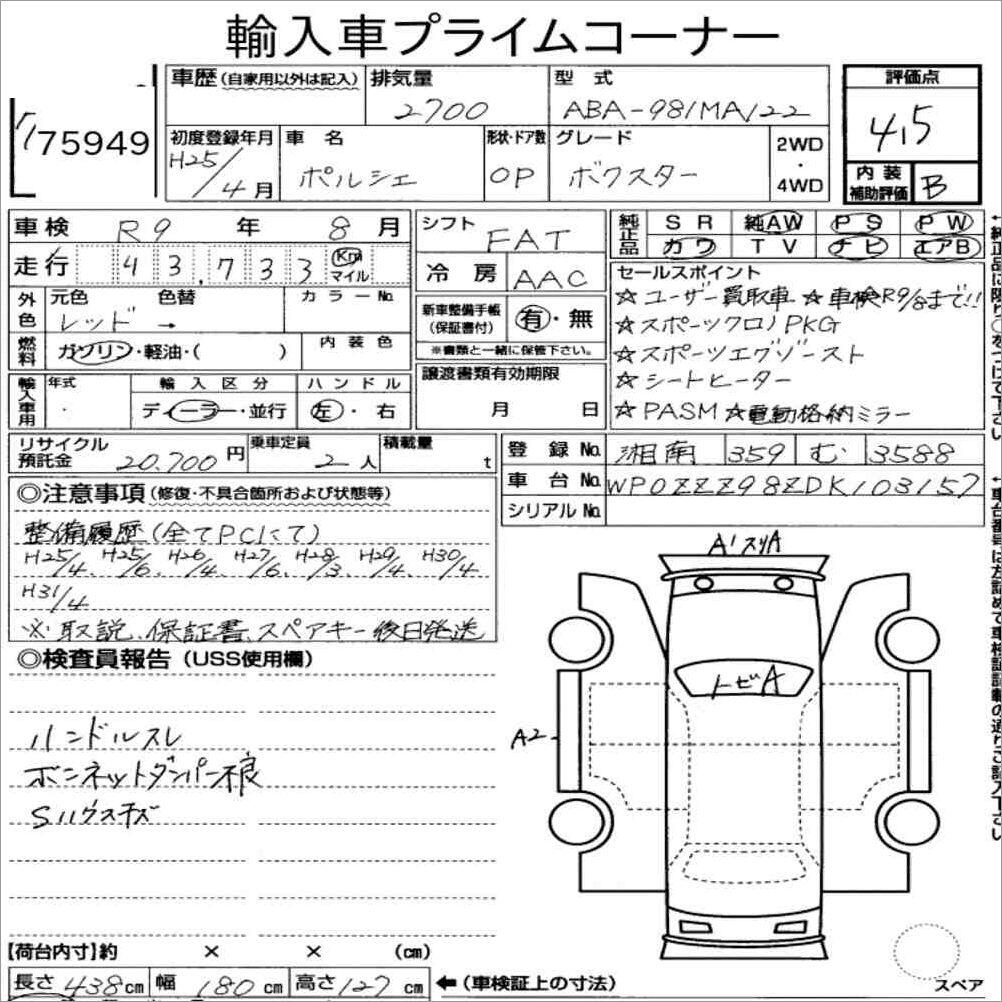 輸入車プライムコーナー
75949
車歴(自家用以外は記入) 排気量 2700 型式 ABA-981MA122 評価点 4.5
初度登録年月 H25/4月 車名 ポルシェ 形状・ドア数 OP グレード ボクスター 2WD・4WD 内装補助評価 B
車検 R9年8月 シフト FAT 純正品 SR 純AW PS PW
カワ TV ナビ エアB
走行 43,733 Km マイル 冷房 AAC
外色 元色 色替 カラーNo.
レッド →
燃料 ガソリン・軽油・( ) 内装色
新車整備手帳(保証書付) 有・無
※書類と一緒に保管下さい。
輸入車用 年式 輸入区分 ハンドル
ディーラー・並行 左・右
譲渡書類有効期限
月 日
セールスポイント
☆ユーザー買取車 ☆車検R9/8まで!!
☆スポーツクロノPKG
☆スポーツエグゾースト
☆シートヒーター
☆PASM ☆電動格納ミラー
リサイクル預託金 20,700円 乗車定員 2人 積載量 t
登録No. 湘南 359 む 3588
車台No. WP0ZZZ98ZDK103157
シリアルNo.
◎注意事項(修復・不具合箇所および状態等)
整備履歴(全てPCにて)
H25/4、H25/6、H26/4、H27/6、H28/3、H29/4、H30/4
H31/4
※取説、保証書、スペアキー後日発送
◎検査員報告(USS使用欄)
ハンドルスレ
ボンネットダンパー不良
A1スリA
トビA
A2
【荷台内寸】約 × × (cm)
長さ 438cm 幅 180cm 高さ 127cm ←(車検証上の寸法)
スペア